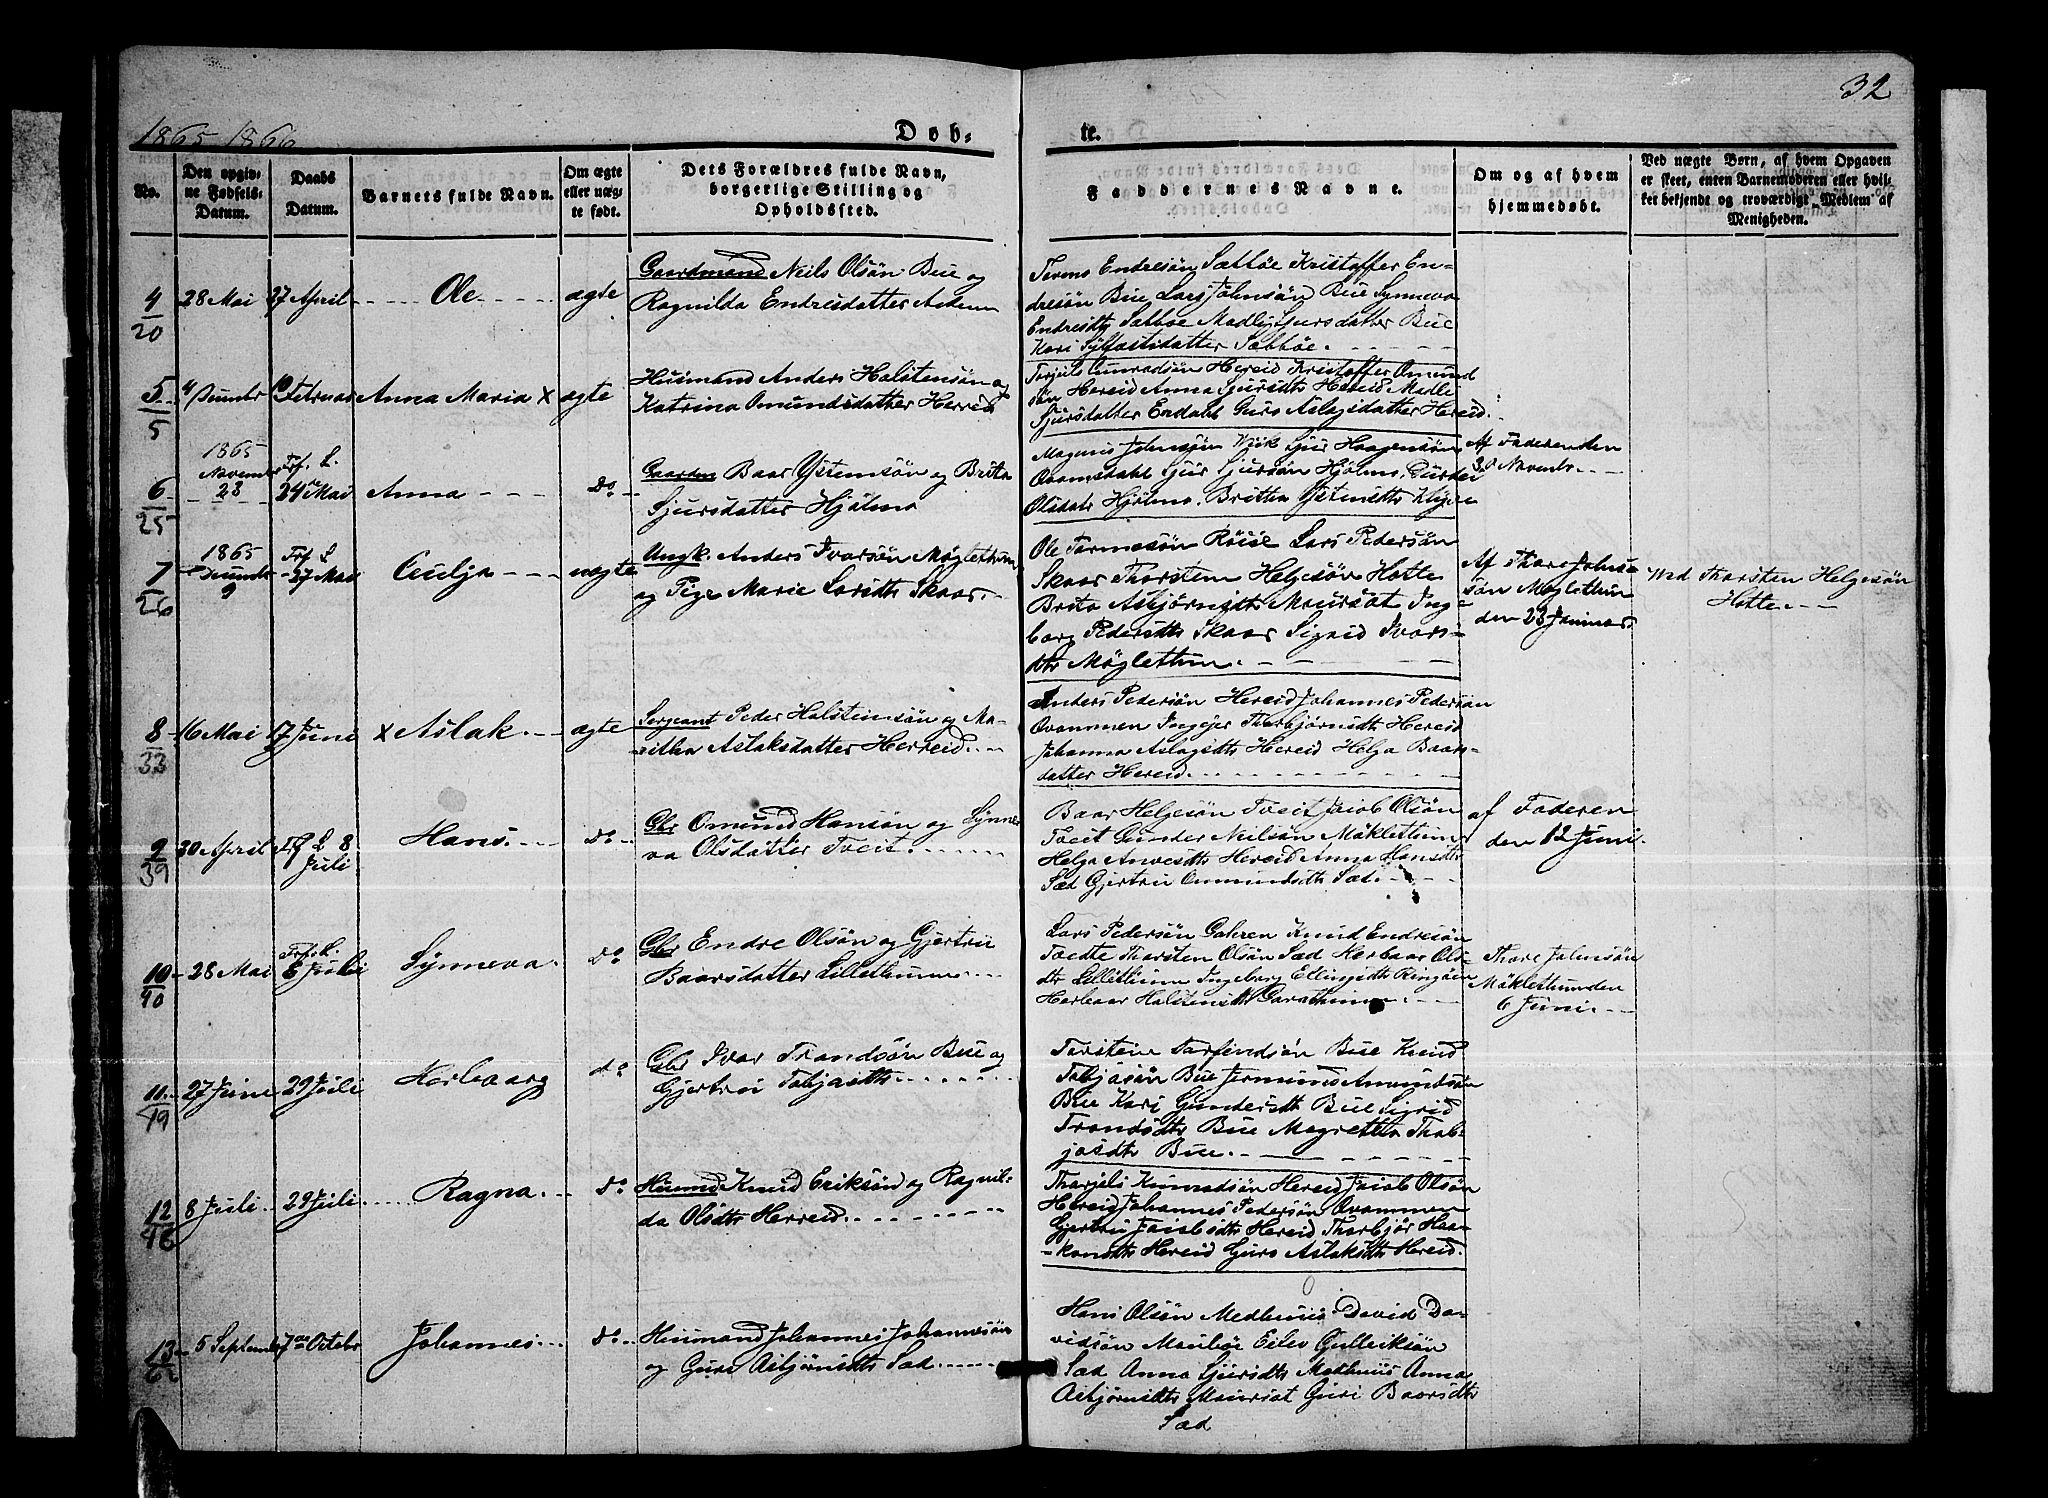 32
1865 1866
Døb-
te.
No.
Den opgiv-
ne Fødsels-
Datum.
Daabs
Datum.
Barnets fulde Navn.
Om ægte
eller uæg-
te født.
Dets Forældres fulde Navn,
borgerlige Stilling og
Opholdssted.
Faddernes Navne.
Om og af hvem
hjemmedøbt.
Ved uægte Børn, af hvem Opgaven
er skeet, enten Barnemoderen eller hvil-
ket bekjendt og troværdigt Medlem af
Menigheden.
4
20
28 Mai
27 April
Ole
ægte
Gaardmand Neils Olsøn Bue og
Ragnilda Endresdatter
Endresøn Sættøe Kristoffer En-
dresøn Bue Lars Johnsøn Bue Synneva
Endresdtr Sættøe Madly Sjursdatter Bue
Kari datter Sættøe.
5
5
4 Decembr
Februar
Anna Maria x
ægte
Husmand Anders Halstensøn og
Katrina Omundsdatter Herreid
Torjuls Hereid Kristoffer Omund
søn Hereid Anna Sjursdtr Hereid Madli
Sjursdatter Endalt Guro Aslagsdatter Hereid.
6
25
1865
November
28
Frf. L.
24 Mai
Anna
Do
Gaardm Baar Ystensøn og Brita
Sjursdatter Hjølmo
Magnus Johnsøn Wiik Sjur Haagensøn
Qvamsdahl Sjur Sjursøn Hjølmo Gurder
Olsdatr Hjølmo. Britta Ystensdtr
Af Faderen den
30 Novembr.
7
26
1865
Decembr
9
Frf. L
27 Mai
Cecilja
uægte
Ungk. Anders Ivarsøn Møglethun
og Pige Marie Larsdtr Skaar.
Ole Tormosøn Røise Lars Pedersøn
Skaar Thorsten Helgesøn Hotte
Brita Asbjørnsdtr Maursæt Inge
borg Pedersdtr Skaar Sigrid Ivars-
dtr Møglethun.
Af Thore Johns
søn Møglethun
den 23 Januar.
Ved Thorsten Helgesøn
Hotte.
8
33
16 Mai
17 Juni
x Aslak.
ægte
Sergeant Peder Halsteinsøn og Ma-
ritha Aslaksdatter Herreid.
Anders Pedersøn Hereid Johannes Pedersøn
Qvammen Ingejer Thorbjørnsdtr Hereid
Johanna Aslagsdtr Hereid Helga Baars-
datter Hereid.
9
39
30 April
Frf L 8
Juli
Hans.
do
Gbr Omund Hansøn og Synne
va Olsdatter Tveit.
Baar Helgesøn Tveit Jacob Olsøn
Tveit Gunder Neilsøn Møklethun
Helga Hereid Anna Hansdtr
Sæd Gjertru Ommundsdtr Sæd.
af Faderen
den 12 Juni.
10
40
28 Mai
Frf. L.
8 Juli
Synneva.
Do
Gbr Endre Olsøn og Gjertru
Baarsdatter Lillethunn.
Lars Pedersøn Gahren Knud Endresøn
Tvedte Thorsten Olsøn Sæd Herbaar Ols-
dtr Lillethunn Ingeborg Ellingsdtr Ringøen
Herbaar Halstensdtr Garathunn.
Thore Johnsøn
Møklethun den
6 Juni.
11
49
27 Juni
29 Juli
Herbaarg
do
Gbr Ivar Trondsøn Bue og
Gjertru Tobjasdtr.
Torstein Torfindsøn Bue Knud
Tobjasøn Bue Jermund Amundsøn
Bue Kari Gundersdtr Bue Sigrid
Trondsdtr Bue Magretta Thob-
jasdtr Bue.
12
46
8 Juli
29 Juli
Ragna.
Do
Husmd Knud Eriksøn og Ragnil-
da Olsdtr Herreid.
Thorjuls Hereid Jacob Olsøn
Hereid Johannes Pedersøn Qvammen
Gjertru Jacobsdtr Hereid Thorbjør Haa-
konsdtr Hereid Guro Aslaksdtr Hereid.
13
62
5 Septembr
7de Octobr
Johannes.
Do
Husmand Johannes Johannesøn
og Guro Asbjørnsdtr Sæd.
Hans Olsøn Medhuus David Da-
vidsøn Eilev Gulleriksøn
Sæd Anna Sjursdtr Medhuus Anna
Asbjørnsdtr Maursæt Guri Baarsdtr
Sæd